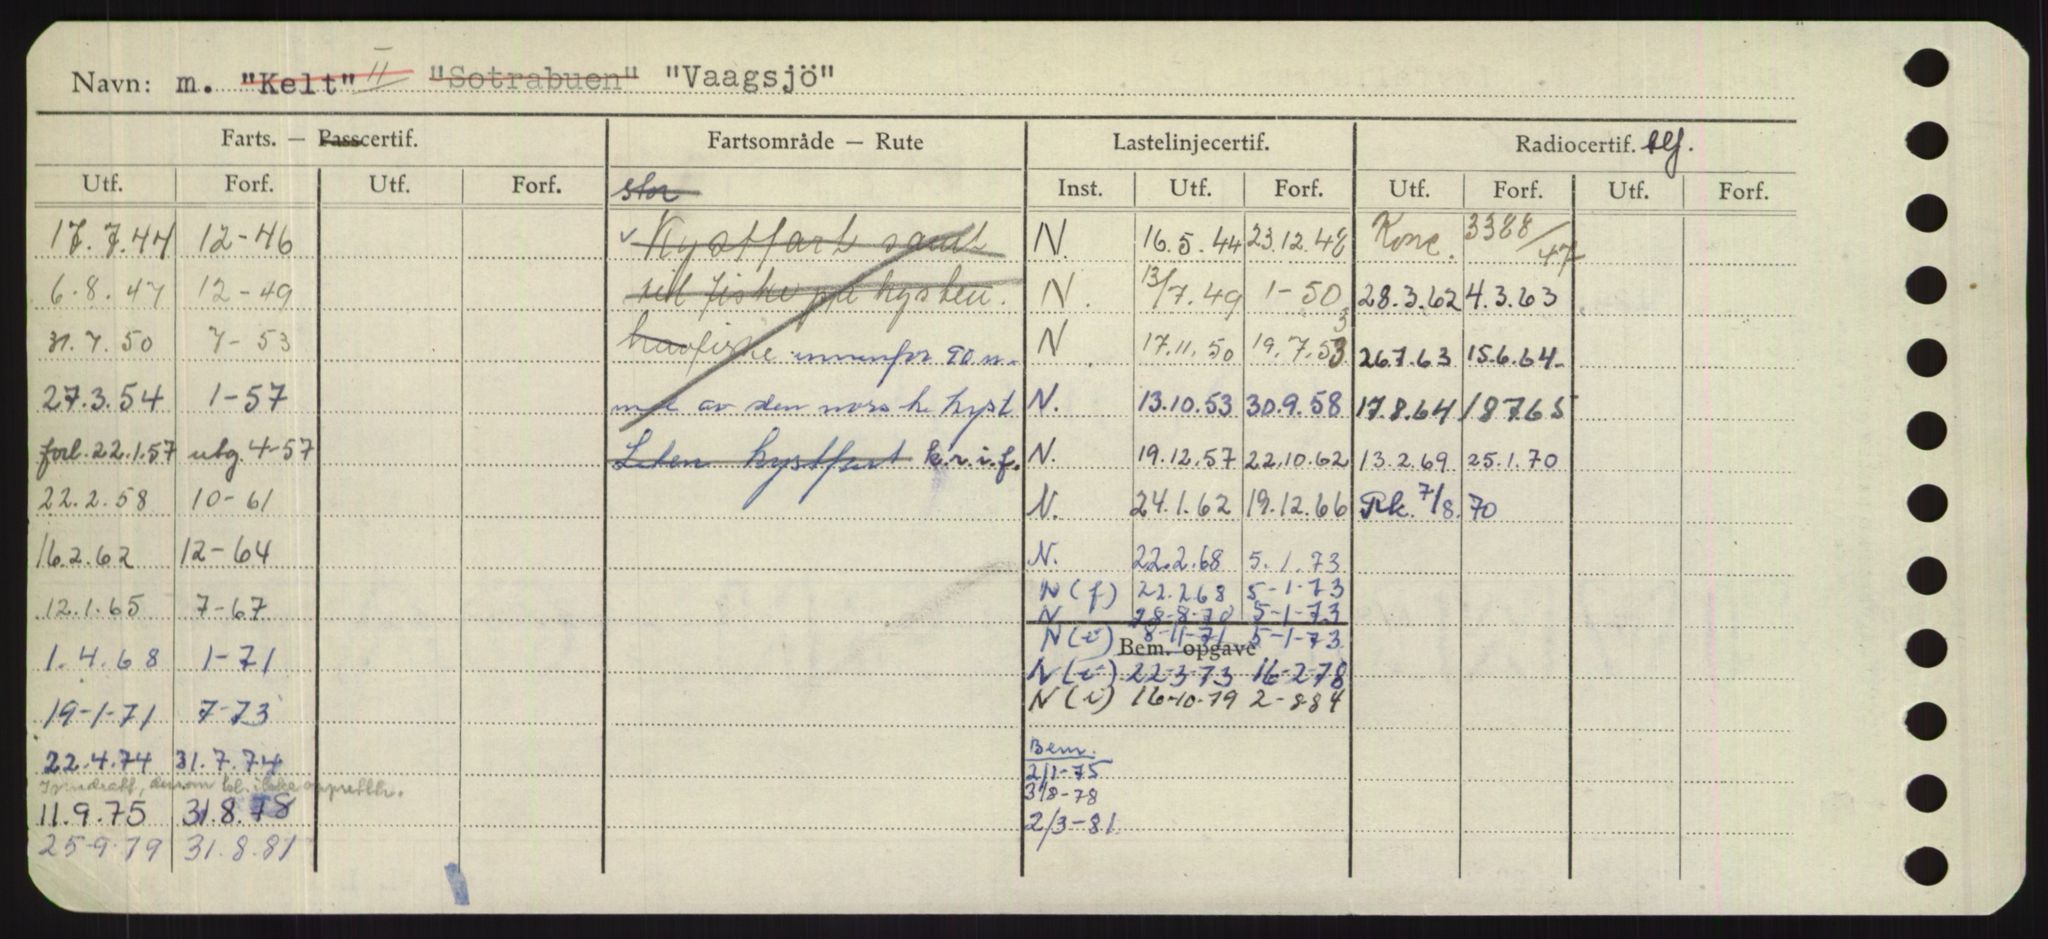 Navn: m. "Kelt" II "Sotrabuen" "Vaagsjö"
Farts. — Passcertif. Fartsområde — Rute Lastelinjecertif. Radiocertif. tlf.
Utf. Forf. Utf. Forf. stor Inst. Utf. Forf. Utf. Forf. Utf. Forf.
17.7.44 12-46 Kystfart samt N. 16.5.44 23.12.48 Konc. 3388/47
6.8.47 12-49 til fiske på kysten. N. 13/7.49 1-50 28.3.62 4.3.63
31.7.50 7-53 havfiske innenfor 90 n- N 17.11.50 19.7.53 26.7.63 15.6.64
27.3.54 1-57 av den norske kyst N. 13.10.53 30.9.58 17.8.64 18765
forl. 22.1.57 utg. 4-57 Liten kystfart k.r.i.f. N. 19.12.57 22.10.62 13.2.69 25.1.70
22.2.58 10-61 N. 24.1.62 19.12.66 Rk. 7/8.70
16.2.62 12-64 N. 22.2.68 5.1.73
N(f) 22.268 5-1-73
12.1.65 7-67 N 28-8-70 5-1-73
N(i) 8-11-71 5-1-73
Bem. opgave
1.4.68 1-71 N(i) 22-3-73 16-2-78
N(i) 16-10-79 2-884
19-1-71 7-73
22.4.74 31.7.74 Bem.
2/1-75
dersom ikke
11.9.75 31.8.78 31/8-78
25-9-79 31.8.81 2/3-81